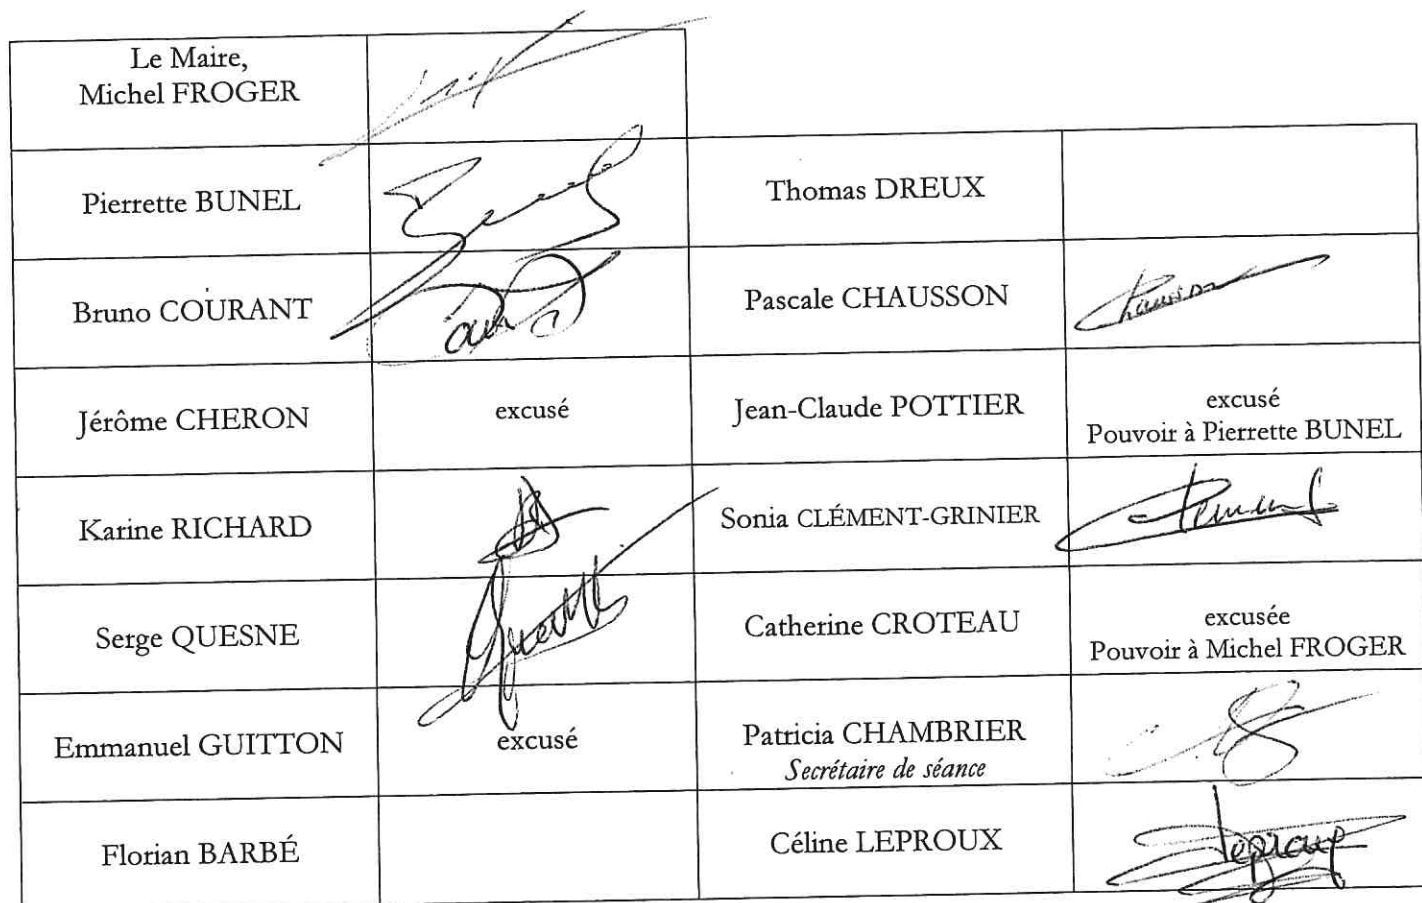 Le Maire,
Michel FROGER
Pierrette BUNEL
Thomas DREUX
Bruno COURANT
Pascale CHAUSSON
Jérôme CHERON
excusé
Jean-Claude POTTIER
excusé
Pouvoir à Pierrette BUNEL
Karine RICHARD
Sonia CLÉMENT-GRINIER
Serge QUESNE
Catherine CROTEAU
excusée
Pouvoir à Michel FROGER
Emmanuel GUITTON
excusé
Patricia CHAMBRIER
Secrétaire de séance
Florian BARBÉ
Céline LEPROUX